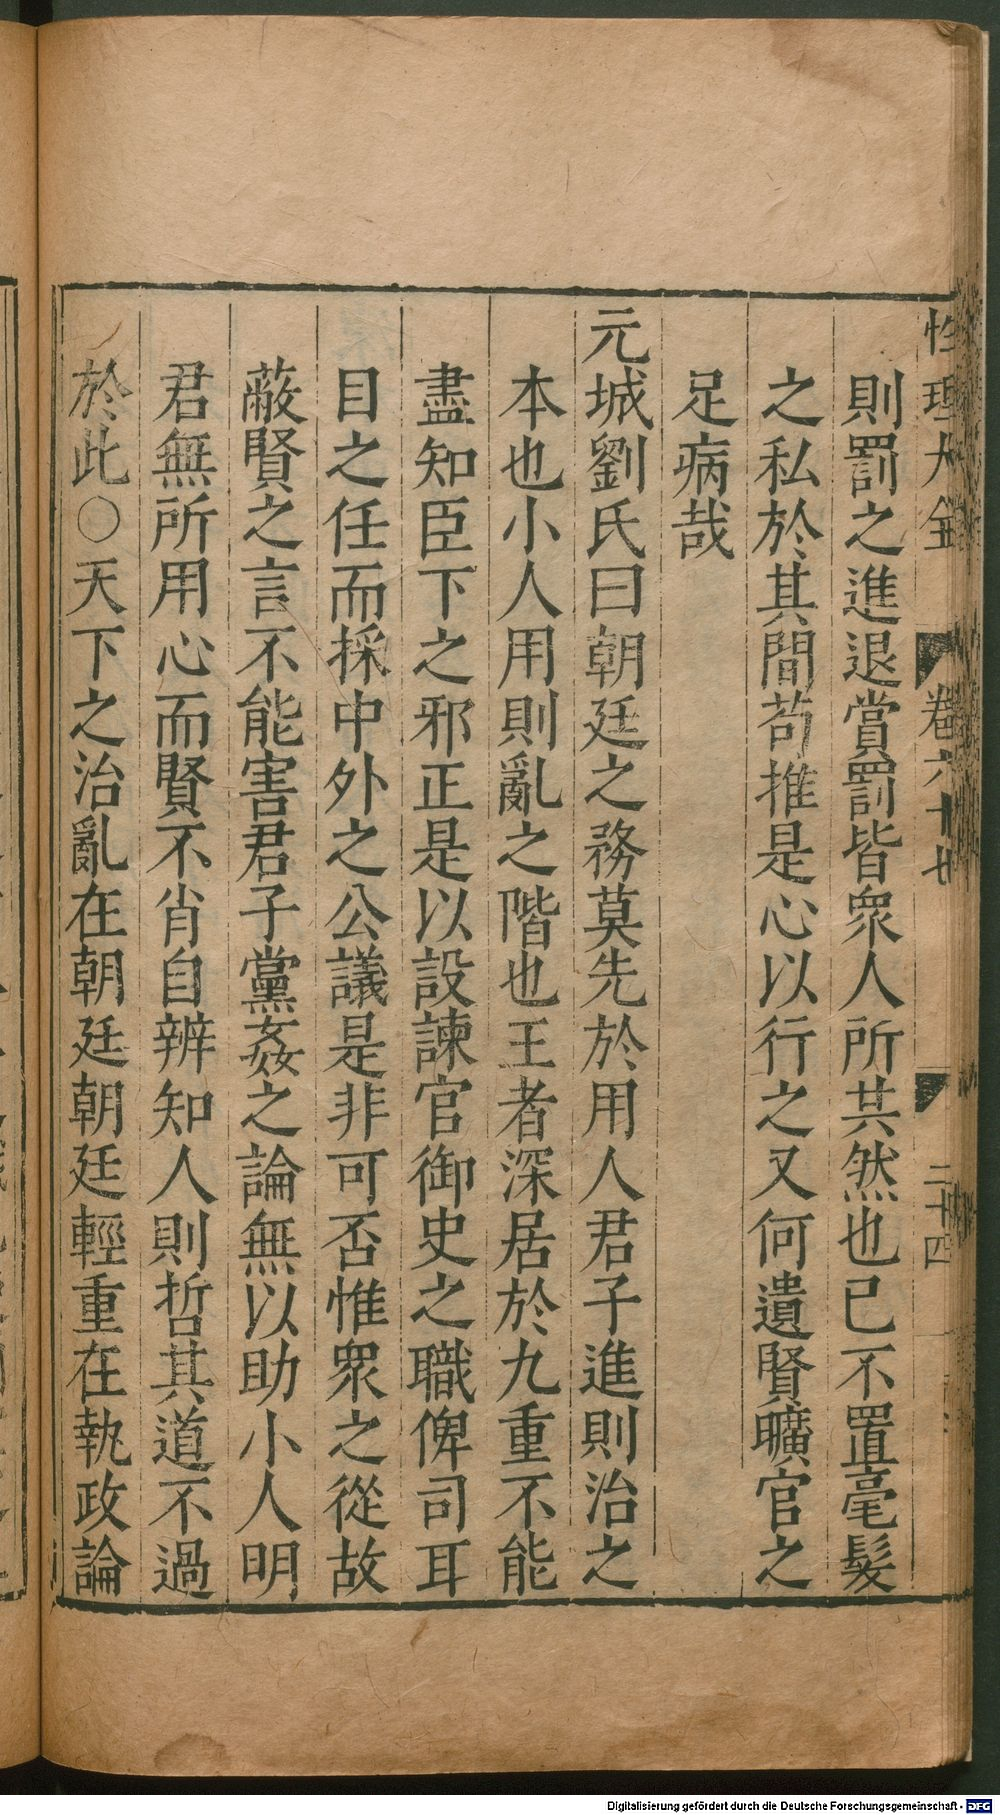 性理大全 卷六十七 二十四
則罰之進退賞罰皆衆人所共然也已不置毫髮
之私於其間苟推是心以行之又何遺賢曠官之
足病哉
元城劉氏曰朝廷之務莫先於用人君子進則治之
本也小人用則亂之階也王者深居於九重不能
盡知臣下之邪正是以設諫官御史之職俾司耳
目之任而採中外之公議是非可否惟衆之從故
蔽賢之言不能害君子黨姦之論無以助小人明
君無所用心而賢不肖自辨知人則哲其道不過
於此○天下之治亂在朝廷朝廷輕重在執政論
Digitalisierung gefördert durch die Deutsche Forschungsgemeinschaft - DFG